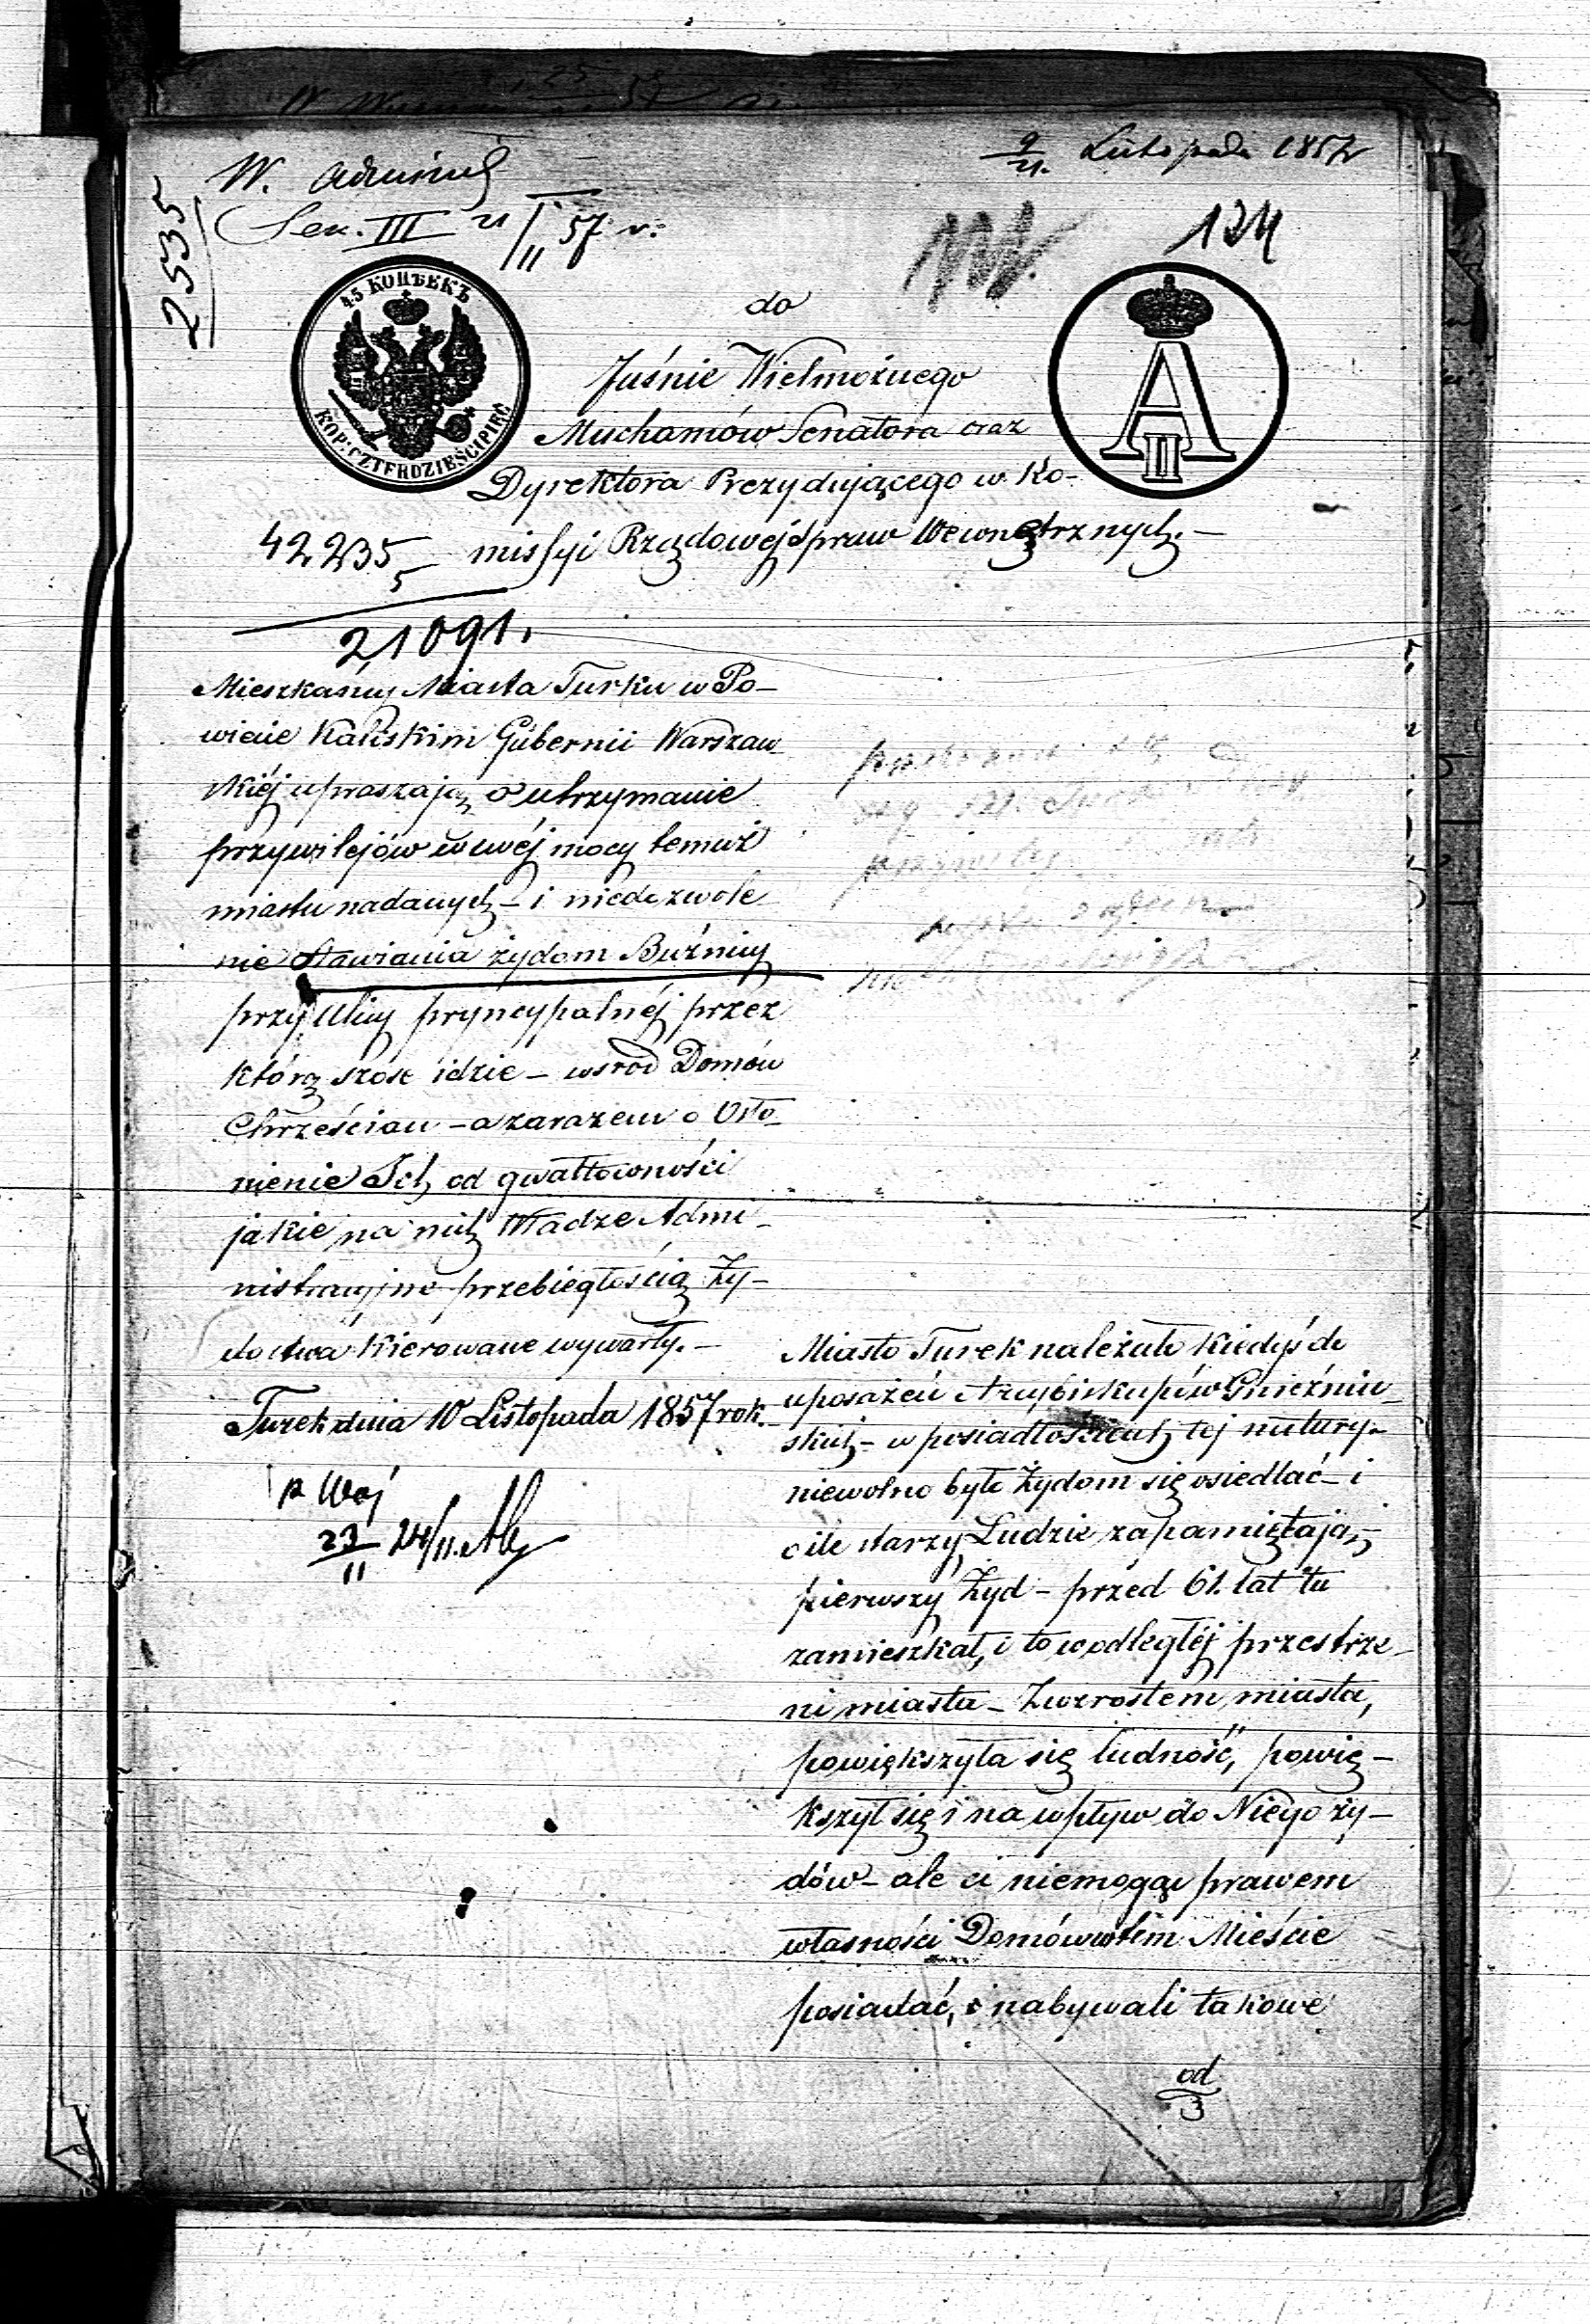 9/21. Listopada 1857
W. Administ
Sek. III 21/II 57 r.
2535
124
45 КОПѢЕКЪ
KOP: CZTERDZIEŚCI PIĘĆ
A
II
do
Jaśnie Wielmożnego
Muchanów Senatora oraz
Dyrektora Prezydującego w Ko-
missyi Rządowej Spraw Wewnętrznych.-
42235
5
21091.
Mieszkańcy Miasta Turku w Po-
wiecie Kaliskim Gubernii Warszaw
skiéj upraszają o utrzymanie
przywilejów w swéj mocy temuż
miastu nadanych - i niedozwole
nie stawiania żydom Bużnicy
przy Ulicy pryncypalnéj przez
którą szose idzie - wsród Domów
Chrześcian - a zarazem o Osło-
nienie Ich od gwałtowności
jakie na nich Władze Admi-
nistracyjne przebiegłością Ży-
dostwa kierowane wywarły.-
Turek dnia 10 Listopada 1857 rok.
23/II 24/11.
Miasto Turek należało kiedyś do
uposażeń Arcybiskupów Gnieźnin-
skich - w posiadłościach tej natury
niewolno było Żydom się osiedlać - i
o ile starzy Ludzie zapamiętają,-
pierwszy Żyd - przed 61. lat tu
zamieszkał, i to w odległéj przestrze-
ni miasta - Zwzrostem miasta,
powiększyła się ludność, powię-
kszył się i na wpływ do Niego ży-
dów - ale ci niemogąc prawem
własności Domów w tém Mieście
posiadać, i nabywali takowe
od
3